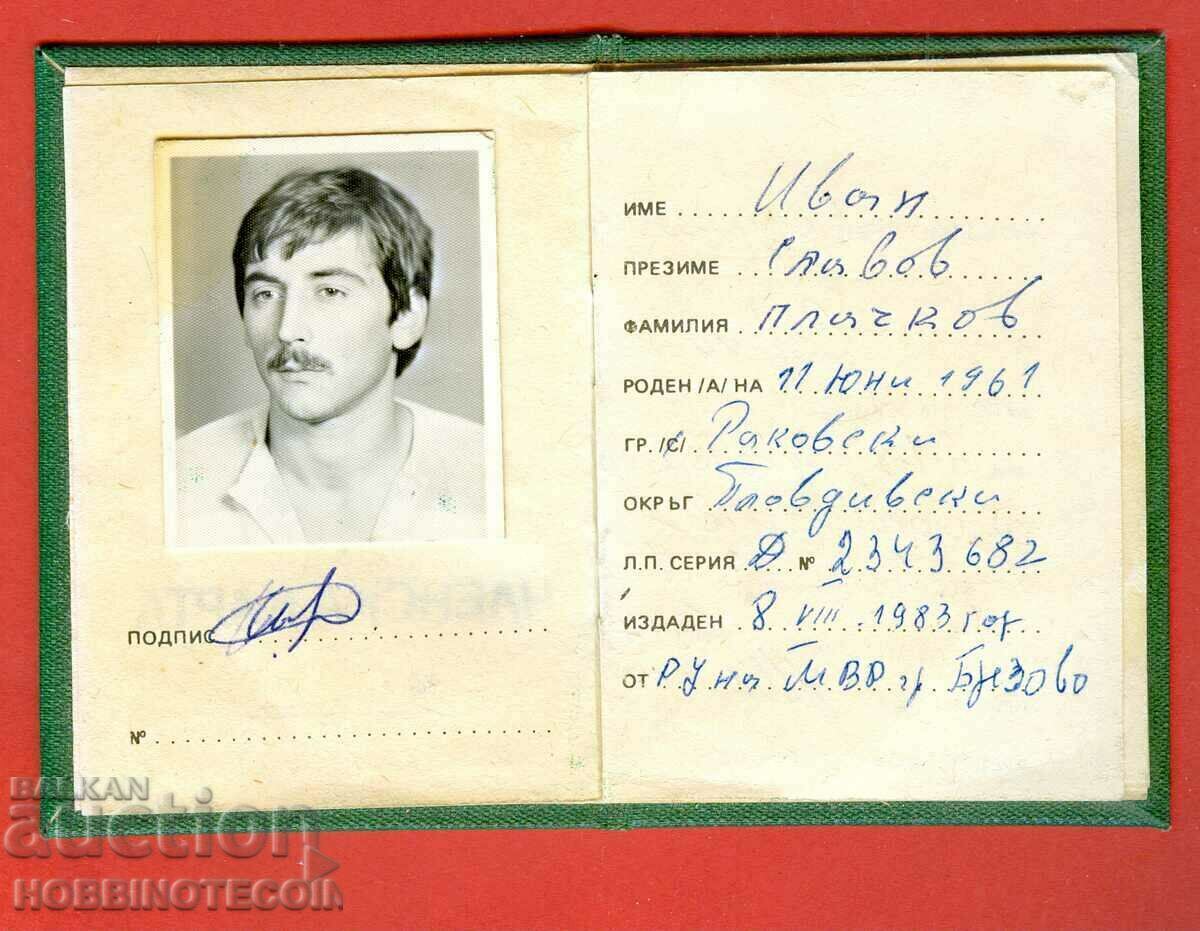 ПОДПИС
№
ИМЕ Иван
ПРЕЗИМЕ Славов
ФАМИЛИЯ Плачков
РОДЕН /А/ НА 11 Юни 1961
ГР. /С/ Раковски
ОКРЪГ Пловдивски
Л.П. СЕРИЯ Д № 2343682
ИЗДАДЕН 8. VIII. 1983 год
ОТ РУ на МВР гр. Брезово
BALKAN
auction
HOBBINOTECOIN